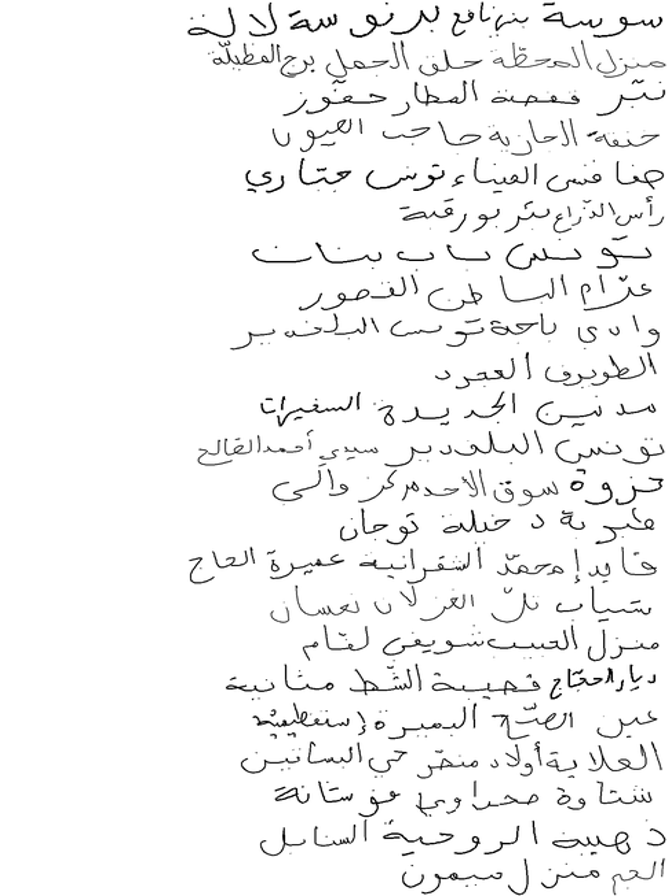 سوسة بئر نافع بدر نوسة لالة
منزل المحطّة حلق الجمل برج الطفيلّة
نبّر قفصة المطار حفّوز
خنقة الجازية حاجب العيون
صفاقس الميناء تونس جبّاري
رأس الذراع بئر بورقبة
تونس باب بنات
عرّام الباطن القصور
وادي باجة تونس البلفدير
الطويرف العجرد
مدنين الجديدة الصغيرات
تونس البلفدير سيدي أحمد الصّالح
حزوة سوق الأحد مركز والي
طبربة دخيلة توجان
قايد إمحمّد الشقرانية عميرة الحاج
شباب تلّ الغزلان نعسان
منزل الحبيب شويفي لقّام
ديار الحجّاج قصيبة الشّط مثانية
عين الصّبح البميرة إسنفطيميّة
العلاية أولاد منصّر حي البساتين
شتاوة صحراوي موستانة
ذهيبة الروحية السنابل
الجم منزل ميمون